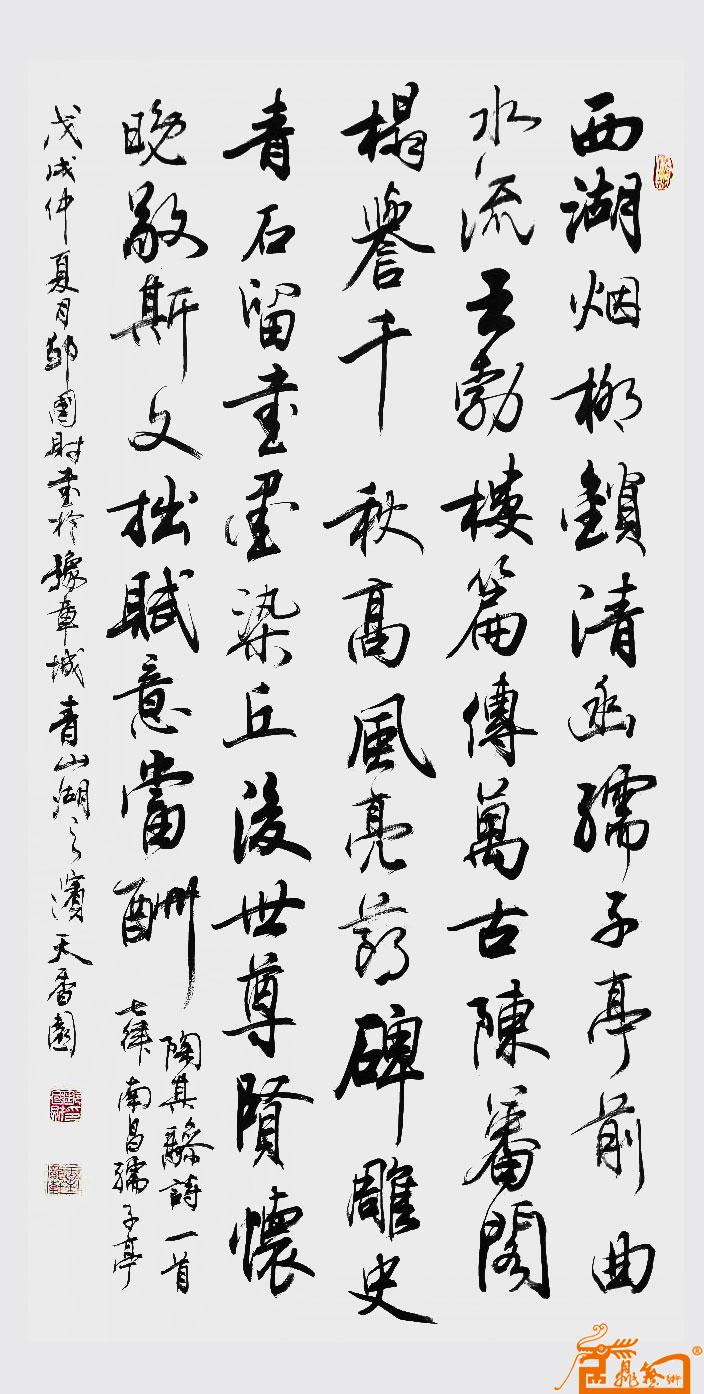 西湖烟柳鎖清幽孺子亭前曲
水流王勃樓篇傳萬古陳蕃閣
榻譽千秋高風亮節碑雕史
青石留書墨染丘後世尊賢懷
晚敬斯文拙賦意當酬
陶其驂詩一首
七律南昌孺子亭
戊戌仲夏月鄒國財書於豫章城青山湖之濱天香園